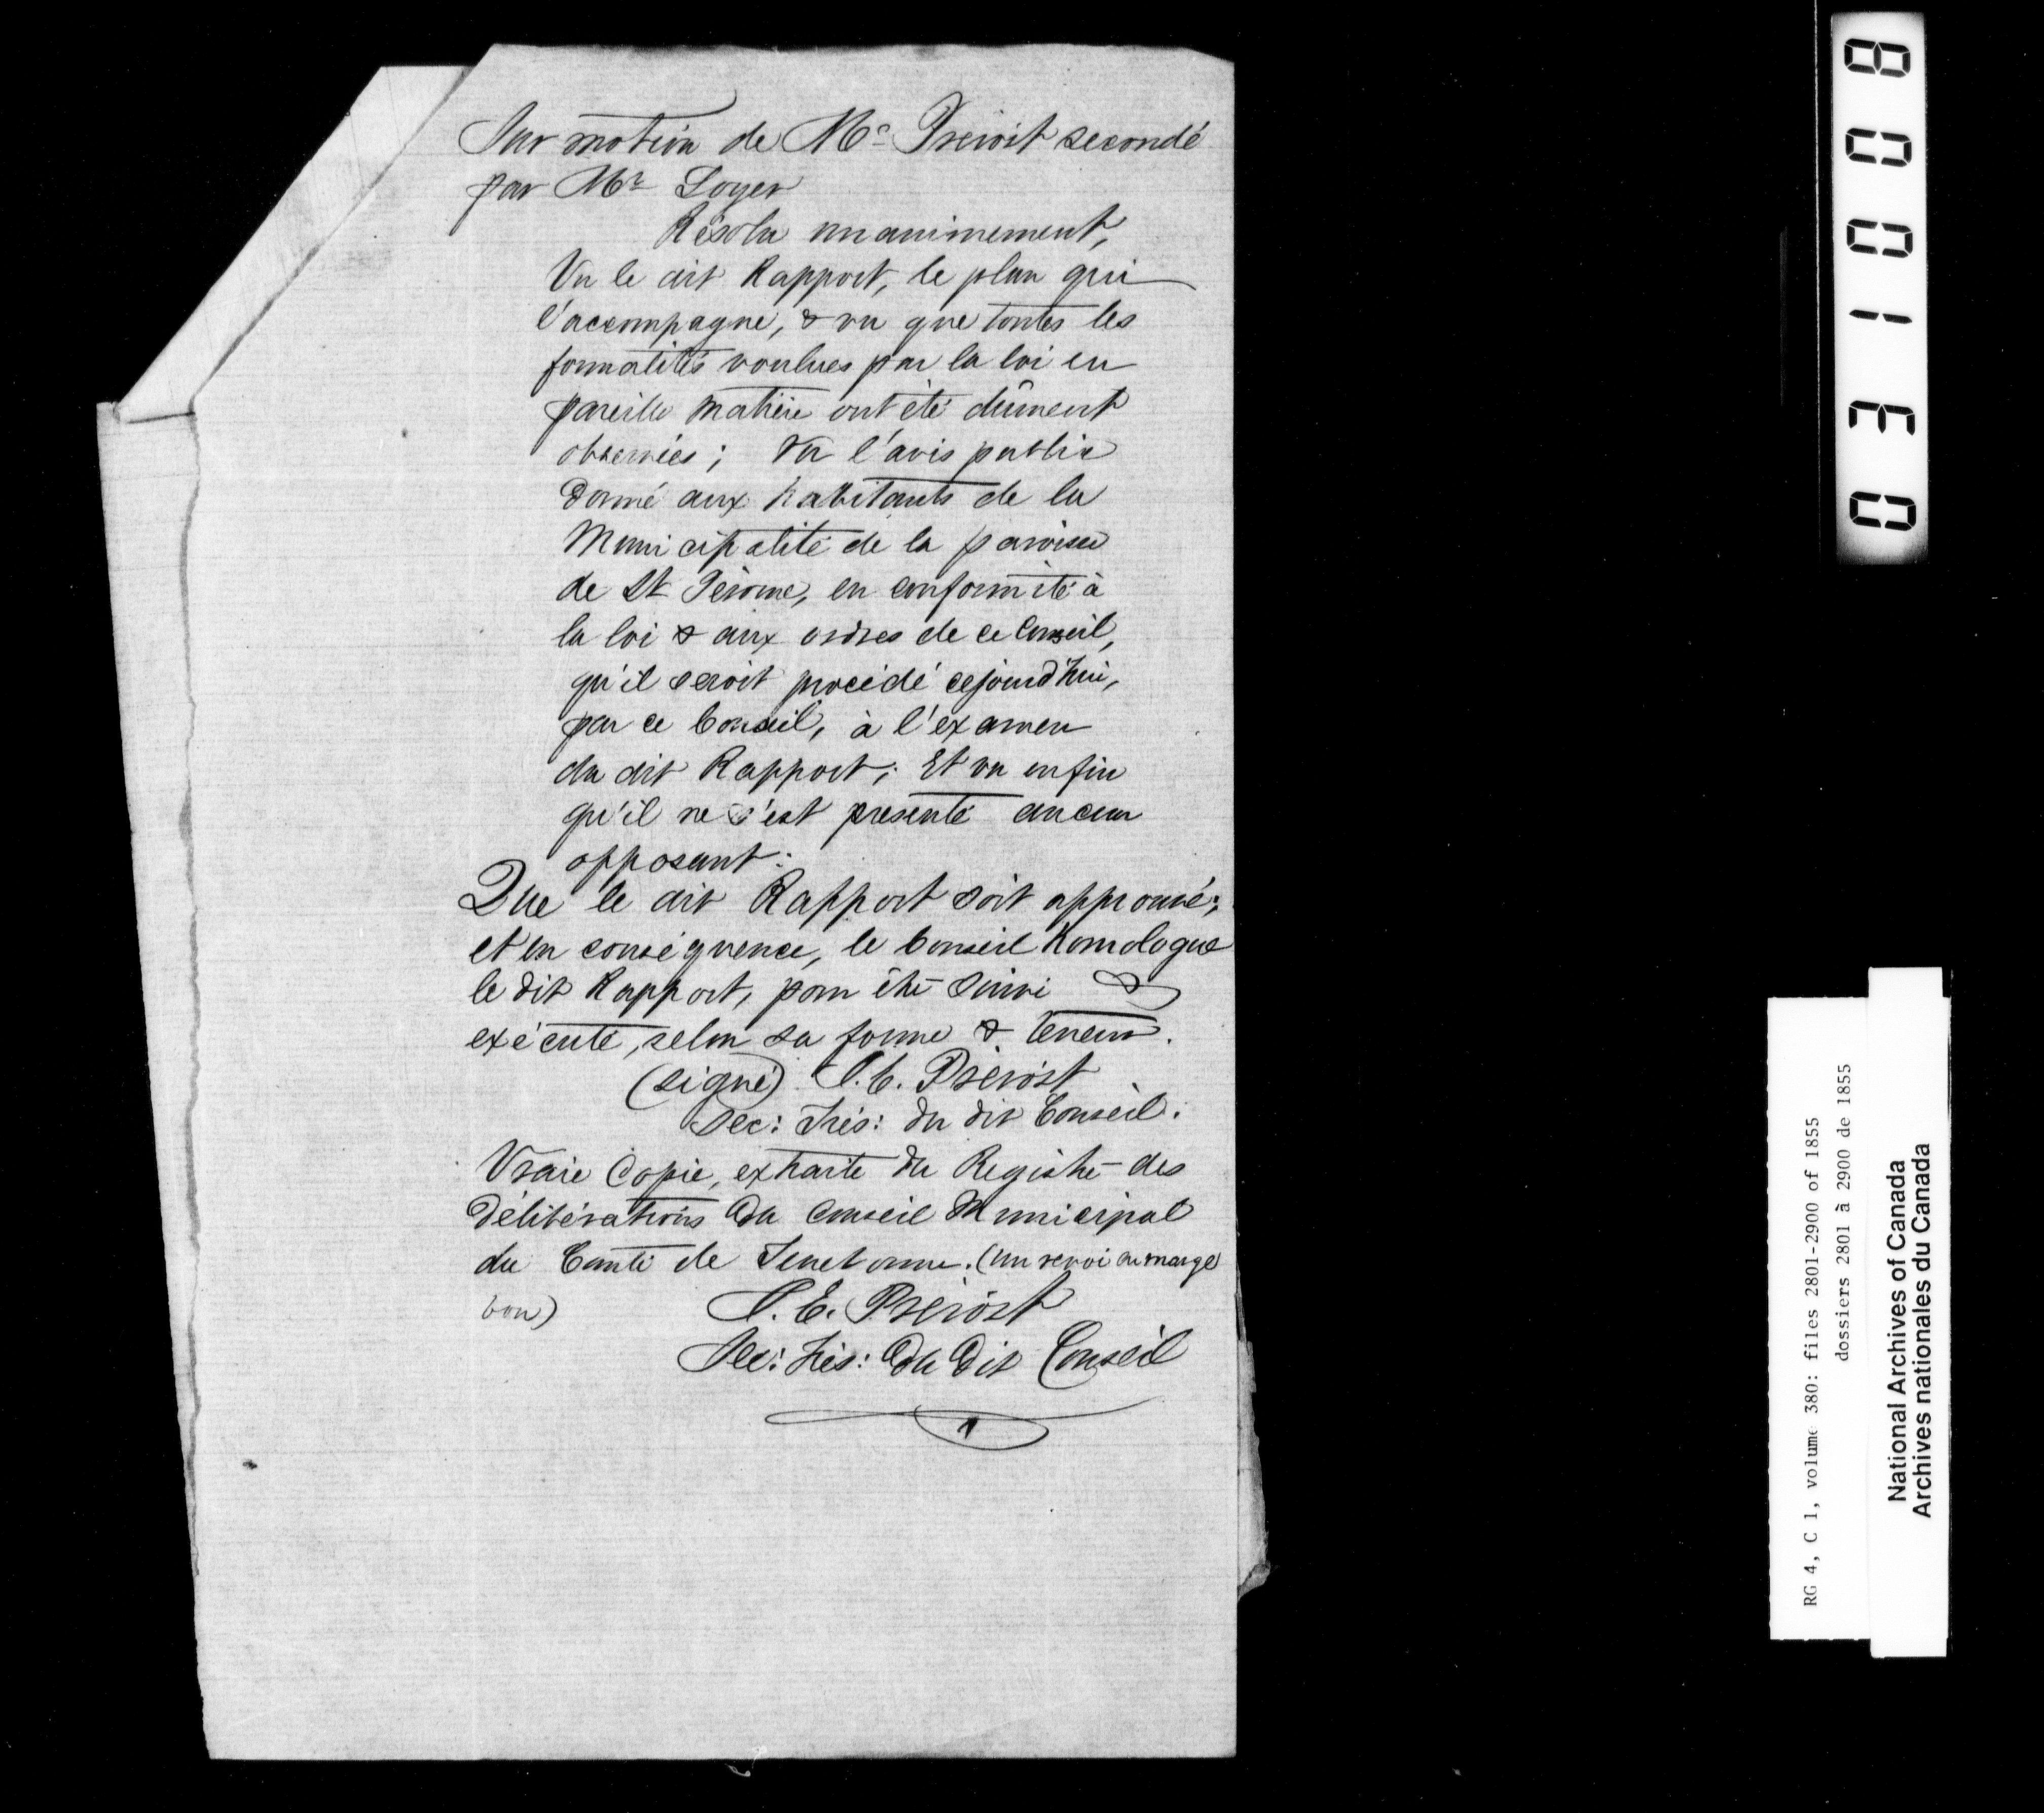 Sur motion de Mr Prévost secondé
par Mr Loyer
Résolu unanimement,
Vu le dit Rapport, le plan qui
l'accompagne, & vu que toutes les
formalités voulues par la loi en
pareille matière ont été dûment
observées; Vu l'avis public
donné aux habitants de la
Municipalité de la paroisse
de St Jérome, en conformité à
la loi & aux ordres de ce Conseil,
qu'il seroit procédé cejourd'hui,
par ce Conseil, à l'examen
du dit Rapport; Et vu enfin
qu'il ne s'est présenté aucun
opposant:
Que le dit Rapport soit approuvé;
et en conséquence, le Conseil homologue
le dit Rapport, pour être suivi &
exécuté, selon sa forme & teneur.
(signé) Prévost
Sec: Trés: du dit Conseil.
Vraie Copie, extraite du Registre des
Délibérations du Conseil Municipal
du Comté de Terrebonne. (un renvoi en marge
bon)
Prévost
Sec: Trés: du Dit Conseil
0 3 1 0 0 8
RG 4, C 1, volume 380: files 2801-2900 of 1855
dossiers 2801 à 2900 de 1855
National Archives of Canada
Archives nationales du Canada